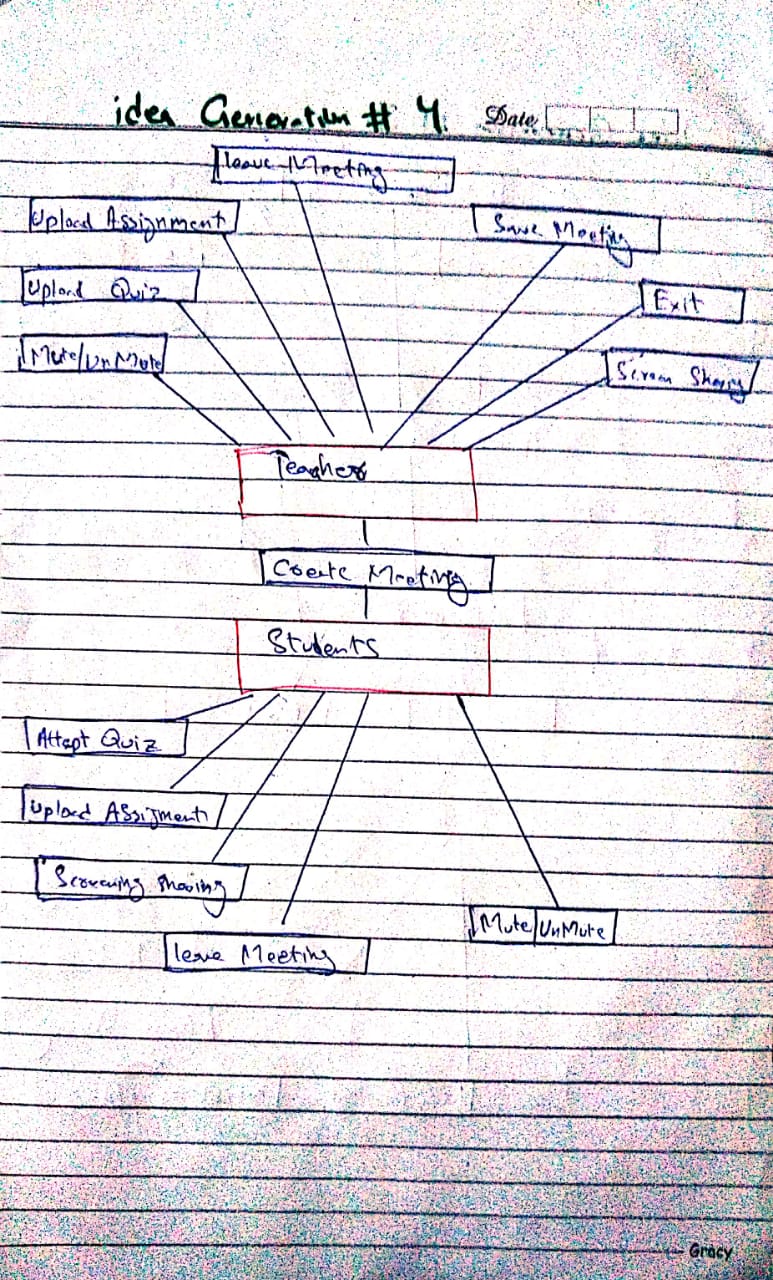 idea Generation # 4. Date
leave Meeting
Upload Assignment
Save Meeting
Upload Quiz
Exit
Mute/UnMute
Screen Sharing
Teacher
Create Meeting
Students
Attept Quiz
Upload Assigment
Screening Sharing
Mute/UnMute
leave Meeting
Gracy